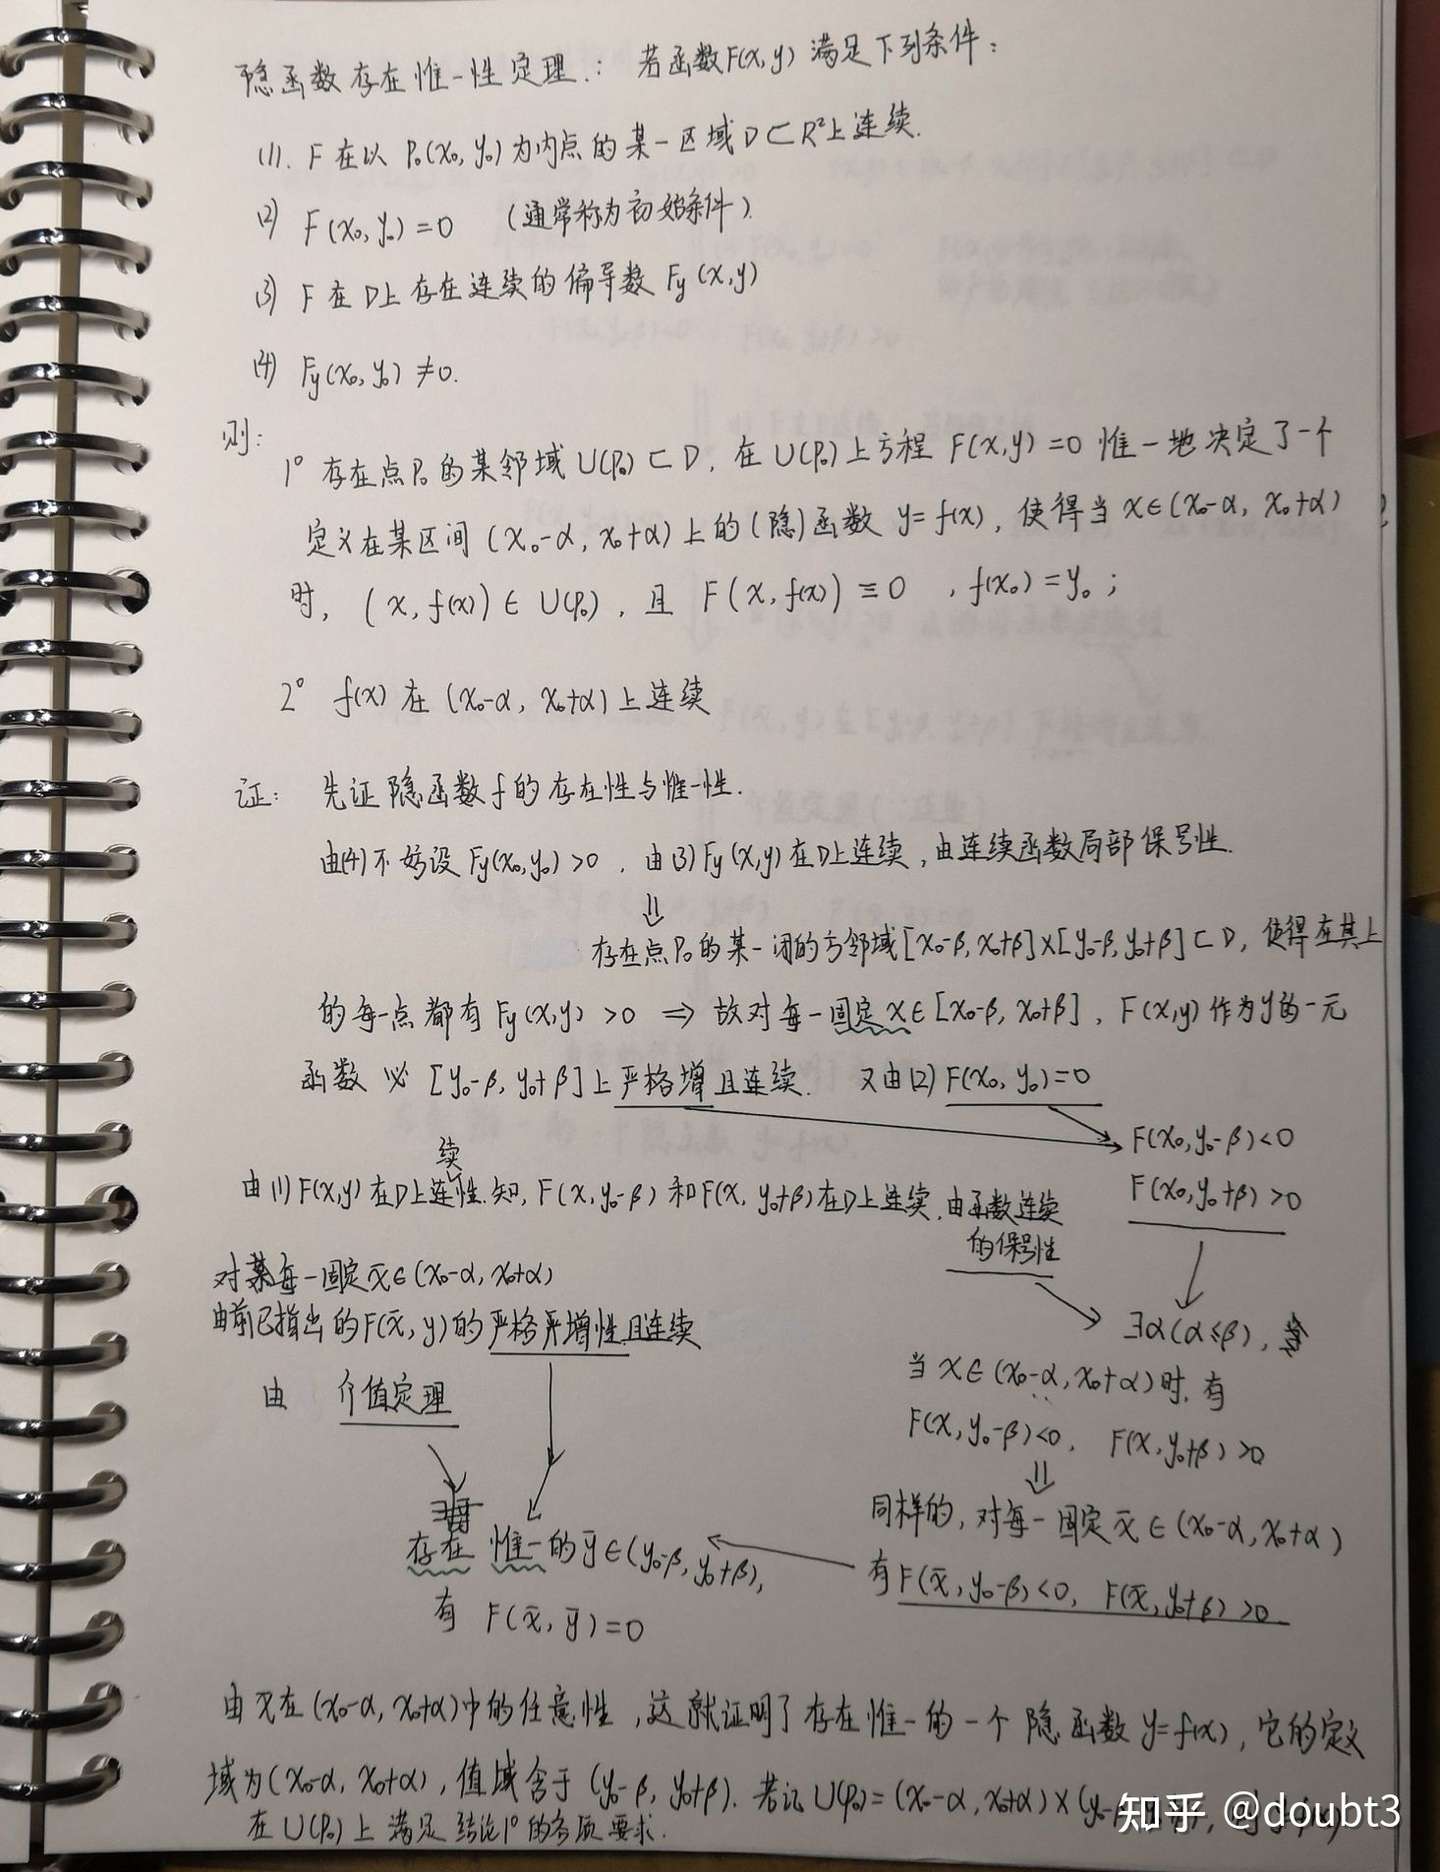 隐函数存在惟一性定理：若函数F(x,y)满足下列条件：
(1). F在以 P₀(x₀, y₀)为内点的某一区域D⊂R²上连续.
(2) F(x₀, y₀)=0 (通常称为初始条件).
(3) F在D上存在连续的偏导数 Fy(x,y)
(4) Fy(x₀, y₀)≠0.
则:
1° 存在点P₀的某邻域U(P₀)⊂D, 在U(P₀)上方程 F(x,y)=0 惟一地决定了一个
定义在某区间(x₀-α, x₀+α)上的(隐)函数 y=f(x), 使得当 x∈(x₀-α, x₀+α)
时, (x, f(x))∈U(P₀), 且 F(x, f(x))≡0, f(x₀)=y₀;
2° f(x)在(x₀-α, x₀+α)上连续
证: 先证隐函数f的存在性与惟一性.
由(4)不妨设Fy(x₀,y₀)>0. 由(3)Fy(x,y)在D上连续,由连续函数局部保号性.
⇓
存在点P₀的某一闭的方邻域[x₀-β, x₀+β]×[y₀-β, y₀+β]⊂D, 使得在其上
的每一点都有Fy(x,y)>0 ⇒ 故对每一固定x∈[x₀-β, x₀+β], F(x,y)作为y的一元
函数必[y₀-β, y₀+β]上严格增且连续. 又由(2)F(x₀, y₀)=0
F(x₀,y₀-β)<0
F(x₀,y₀+β)>0
由(1)F(x,y)在D上连续性.知, F(x,y₀-β)和F(x, y₀+β)在D上连续.由函数连续
的保号性
∃α(α≤β),
当 x∈(x₀-α, x₀+α)时,有
F(x,y₀-β)<0, F(x,y₀+β)>0
⇓
同样的,对每一固定x̄∈(x₀-α, x₀+α)
有F(x̄, y₀-β)<0, F(x̄, y₀+β)>0
对每一固定x̄∈(x₀-α, x₀+α)
由前已指出的F(x̄, y)的严格增性且连续
由 介值定理
存在 惟一的ȳ∈(y₀-β, y₀+β),
有 F(x̄, ȳ)=0
由x̄在(x₀-α, x₀+α)中的任意性,这就证明了存在惟一的一个隐函数y=f(x),它的定义
域为(x₀-α, x₀+α),值域含于(y₀-β, y₀+β). 若记U(P₀)=(x₀-α, x₀+α)×(y₀-β
在U(P₀)上满足结论1°的各项要求.
知乎 @doubt3